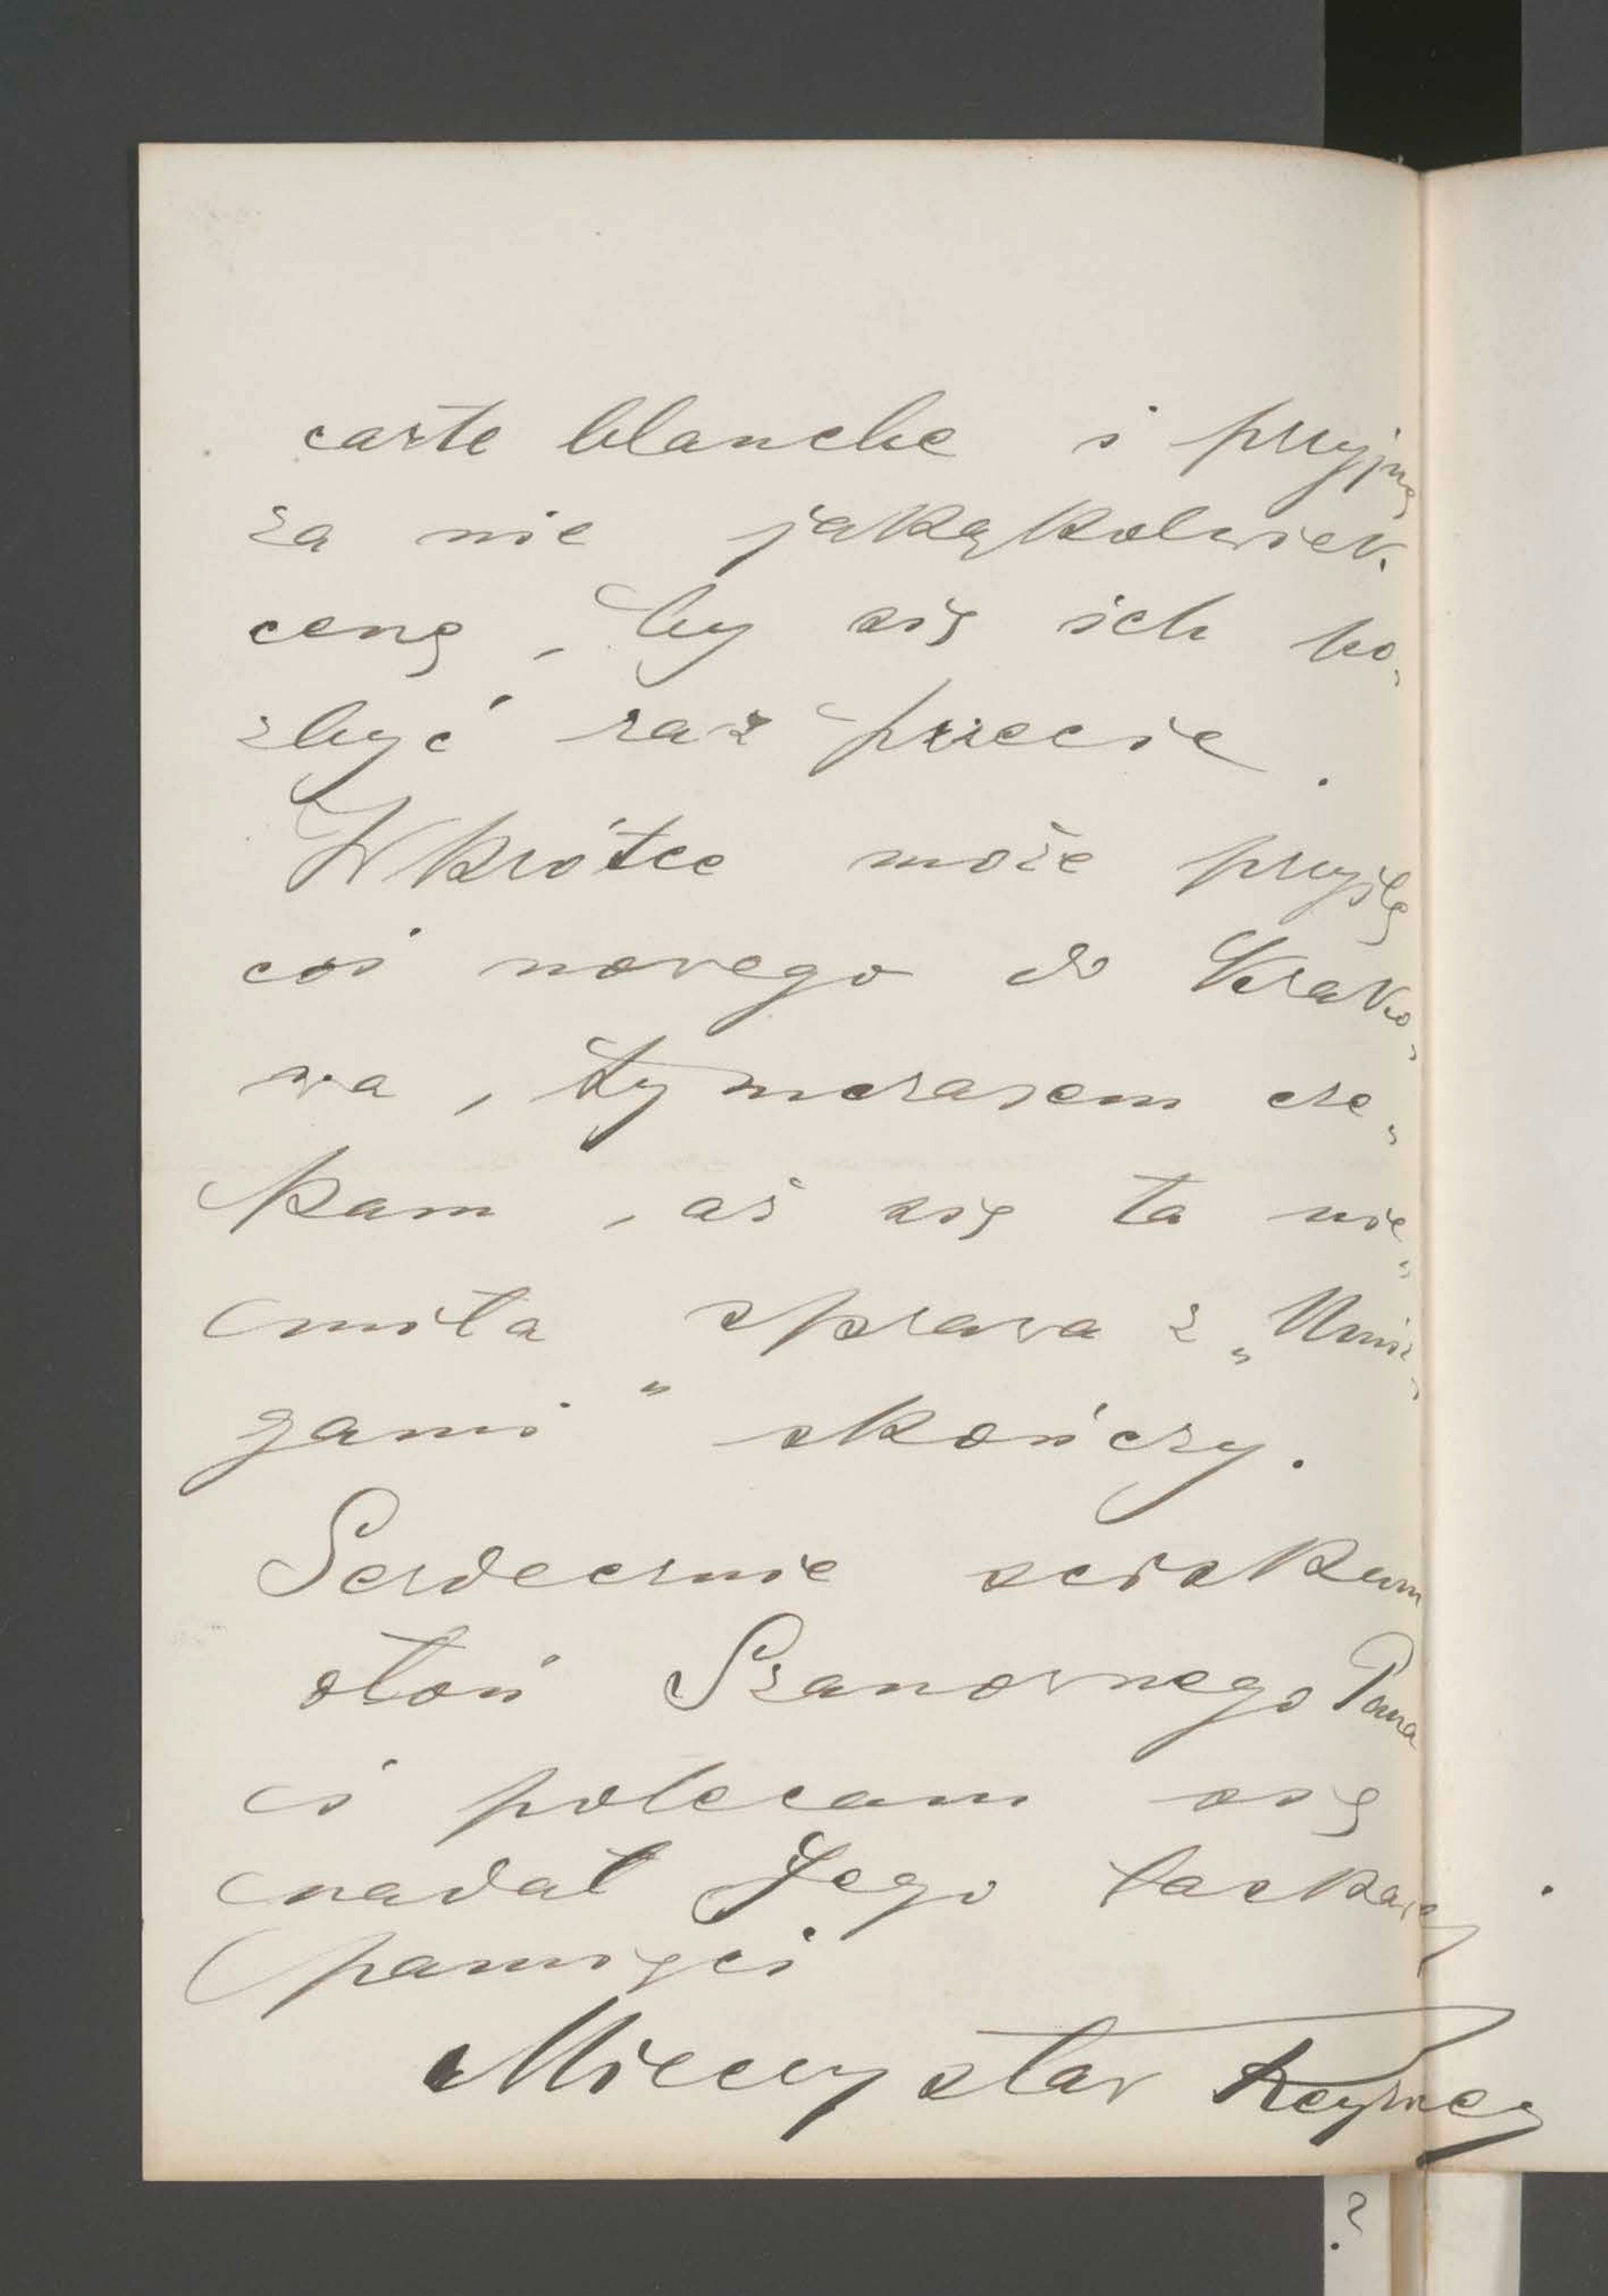 carte blanche i przyjmę
za nie jakąkolwiek
cenę, by się ich po„
zbyć raz przecie.
Wkrótce może przyślę
coś nowego do Krako„
wa, tymczasem cze„
kam, aż się ta nie„
miła sprawa z „Umiz„
gami" skończy.
Serdecznie ściskam
dłoń Szanownego Pana
i polecam się
nadal Jego łaskawej
pamięci
Mieczysław Reyzner
?